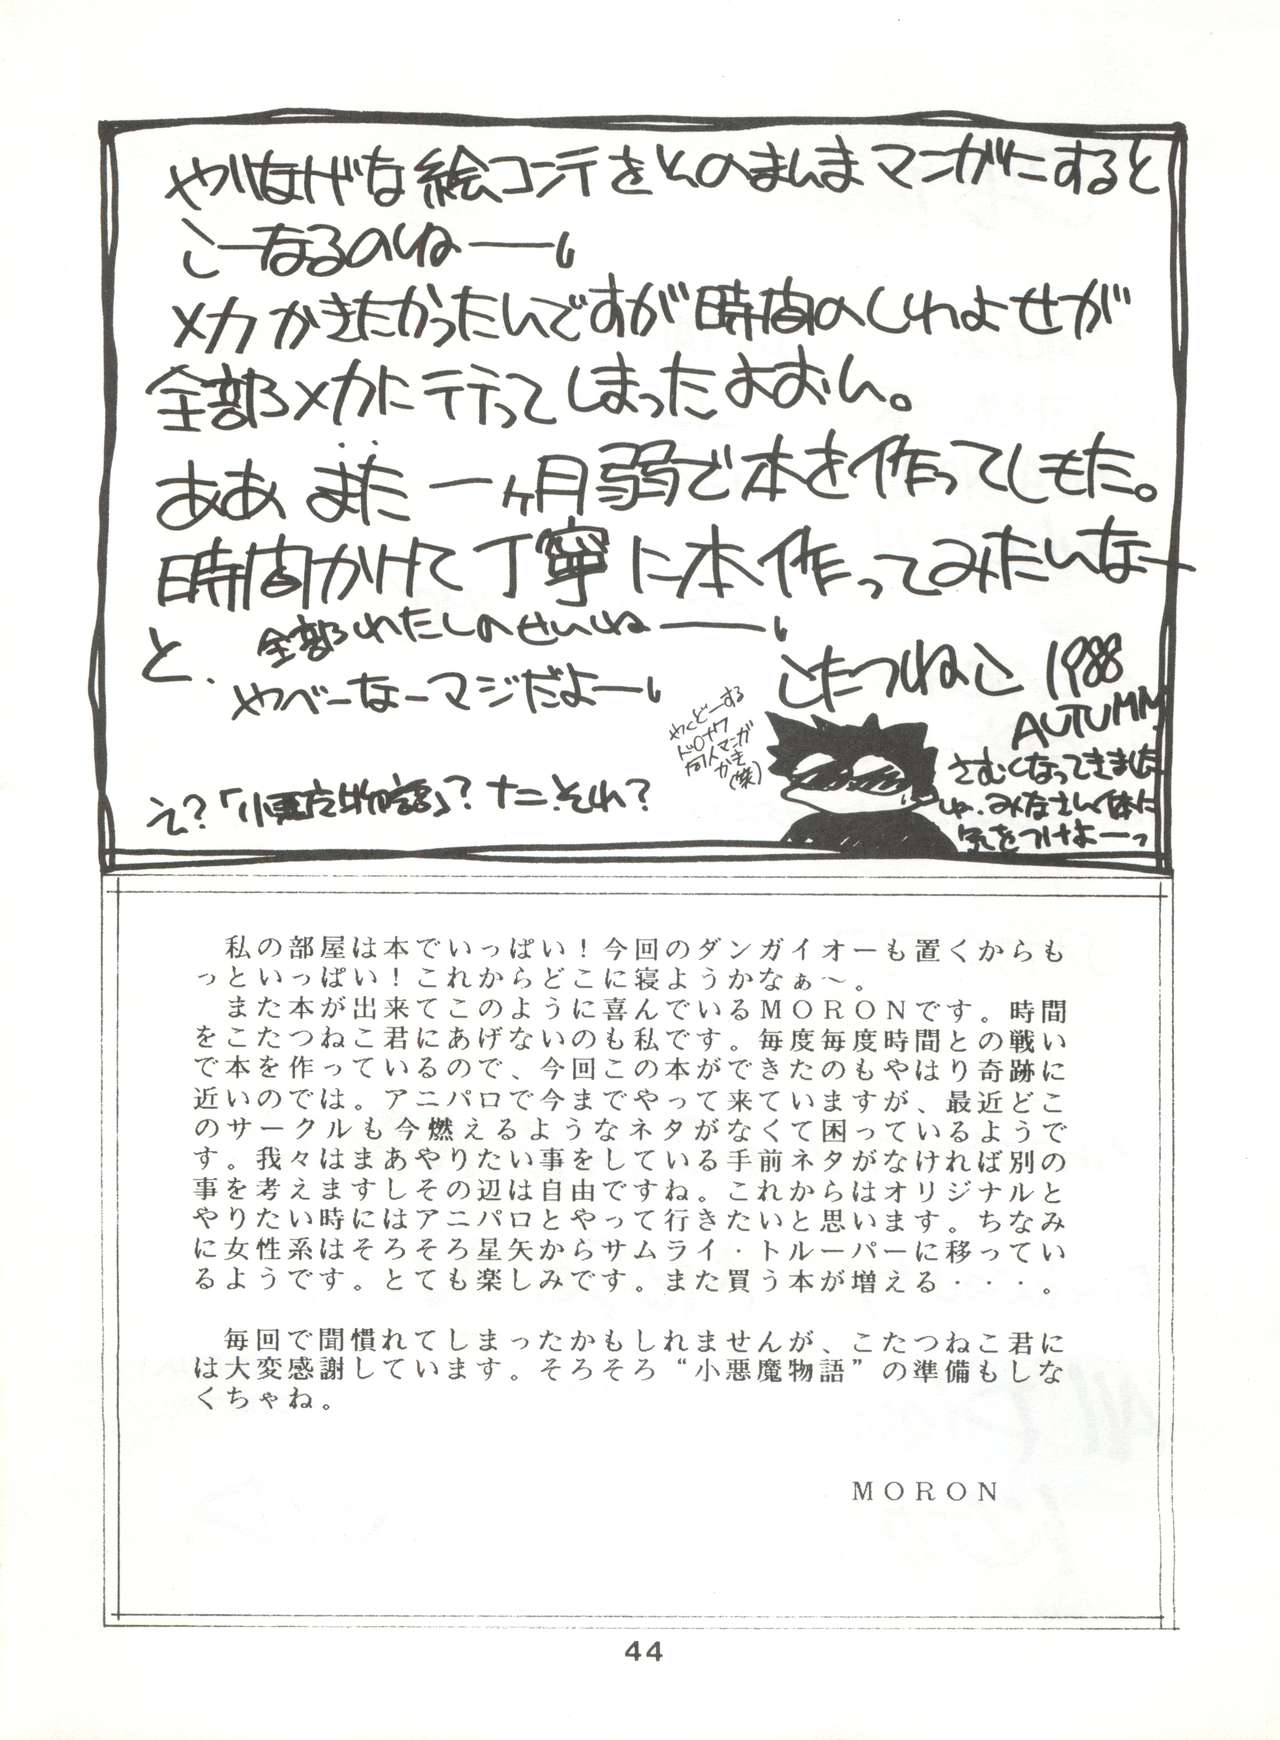 やりなげな絵コンテをそのまんまマンガにすると
こーなるのねーー
メカかきたかったんですが時間のしわよせが
全部メカに行ってしまったよおん。
ああ また 一ヶ月弱で本を作ってしもた。
時間かけて丁寧に本作ってみたいなー
と、
全部わたしのせいねーー
やべーなーマジだよーー
え?「小悪魔物語」?ナニ、それ?
こたつねこ 1988
AUTUMN
同人マンガ
かき
(笑)
さむくなってきました
みなさん体に
気をつけよーっ
私の部屋は本でいっぱい!今回のダンガイオーも置くからも
っといっぱい!これからどこに寝ようかなぁ～。
また本が出来てこのように喜んでいるMORONです。時間
をこたつねこ君にあげないのも私です。毎度毎度時間との戦い
で本を作っているので、今回この本ができたのもやはり奇跡に
近いのでは。アニパロで今までやって来ていますが、最近どこ
のサークルも今燃えるようなネタがなくて困っているようで
す。我々はまあやりたい事をしている手前ネタがなければ別の
事を考えますしその辺は自由ですね。これからはオリジナルと
やりたい時にはアニパロとやって行きたいと思います。ちなみ
に女性系はそろそろ星矢からサムライ・トルーパーに移ってい
るようです。とても楽しみです。また買う本が増える・・・。
毎回で聞慣れてしまったかもしれませんが、こたつねこ君に
は大変感謝しています。そろそろ“小悪魔物語”の準備もしな
くちゃね。
MORON
44